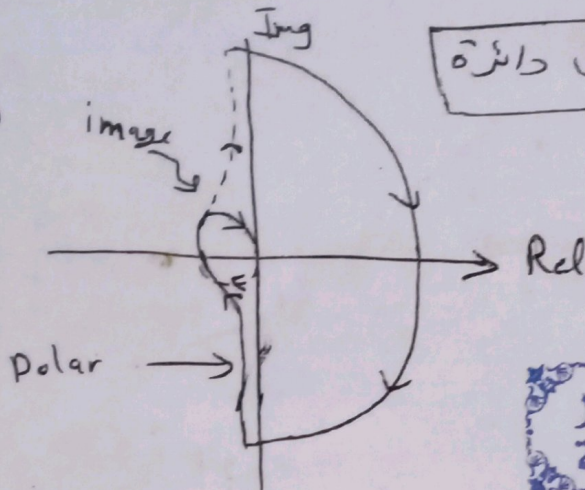 Img
دائرة
image
Rel
Polar